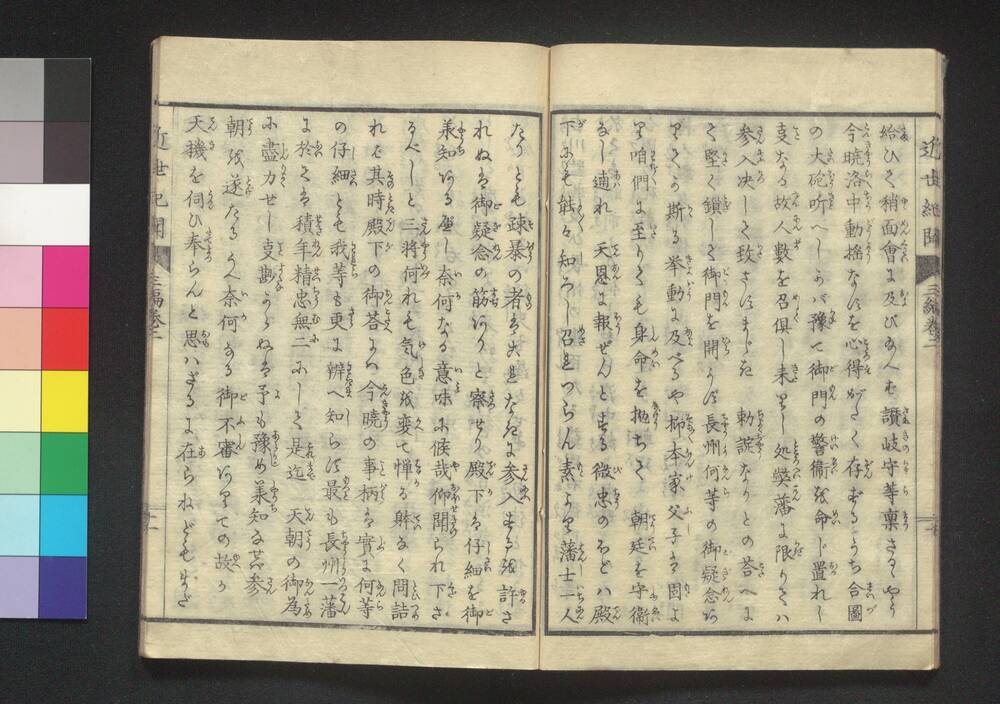 近世紀聞
三編巻二
給ひて稍面會に及びぬ人も讃岐守等稟さるゝやう
今暁洛中動揺なすを心得がたく存ずるうち合圖
の大砲聞へしかバ豫て御門の警衛を命じ置れし
支なる故人數を召俱し来りし処弊藩に限りてハ
参入决して致さすまじき 勅諚なりとの答へに
て堅く鎖して御門を開かず長州何等の御疑念あ
りてか斯る挙動に及べるや抑本家父子は固よ
り咱們に至りても身命を抛ちて 朝廷を守衛
なし適れ 天恩に報ぜんと する微忠のほどハ殿
下にも能々知ろし召れつらん素より藩士一人
たりとも疎暴の者は出さゞなきに参入するを許さ
れぬは御疑念の筋ありと察せり殿下は仔細を御
兼知あるべし奈何なる意味に候哉仰聞られ下さ
るべしと三将何れも気色を変て憚る躰なく問詰
れば其時殿下の御答にハ今暁の事柄は實に何等
の仔細とも我等も更に辨へ知らず最も長州一藩
に於ては積年精忠無二にして是迄 天朝の御為
に盡力せし支尠からぬは予も豫め兼知なし参
朝を遂たるうへ奈何なる御不審ありての故か
天機を伺ひ奉らんと思ハざるに在らねどもまだ
近世紀聞
三編巻二